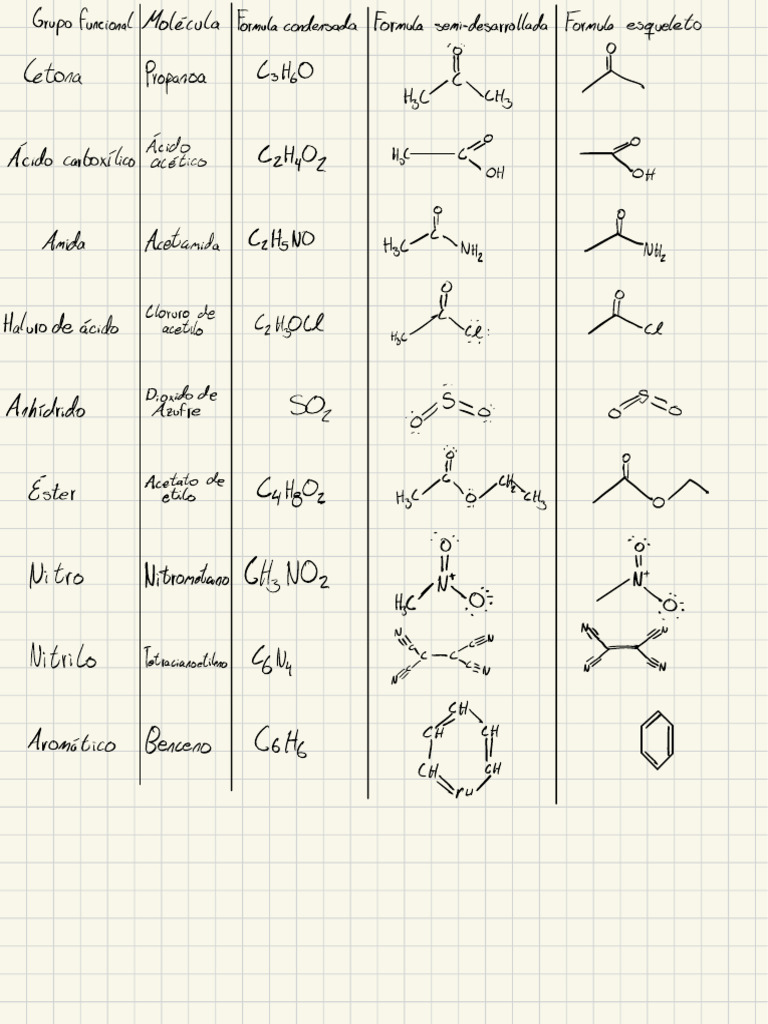 Grupo Funcional Molécula Formula condensada Formula semi-desarrollada Formula esqueleto
Cetona Propanoa C3H6O O C H3C CH3 O
Ácido carboxílico Ácido acético C2H4O2 H3C C O OH O OH
Amida Acetamida C2H5NO O C H3C NH2 O NH2
Haluro de ácido Cloruro de acetilo C2H3OCl O C H3C Cl O Cl
Anhídrido Dioxido de Azufre SO2 O S O O S O
Éster Acetato de etilo C4H8O2 O C H3C O CH2 CH3 O O
Nitro Nitrometano CH3NO2 O N+ H3C O O N+ O
Nitrilo Tetracianoetileno C6N4 N C C N C C N C C N N N N N
Aromático Benceno C6H6 CH CH CH CH CH